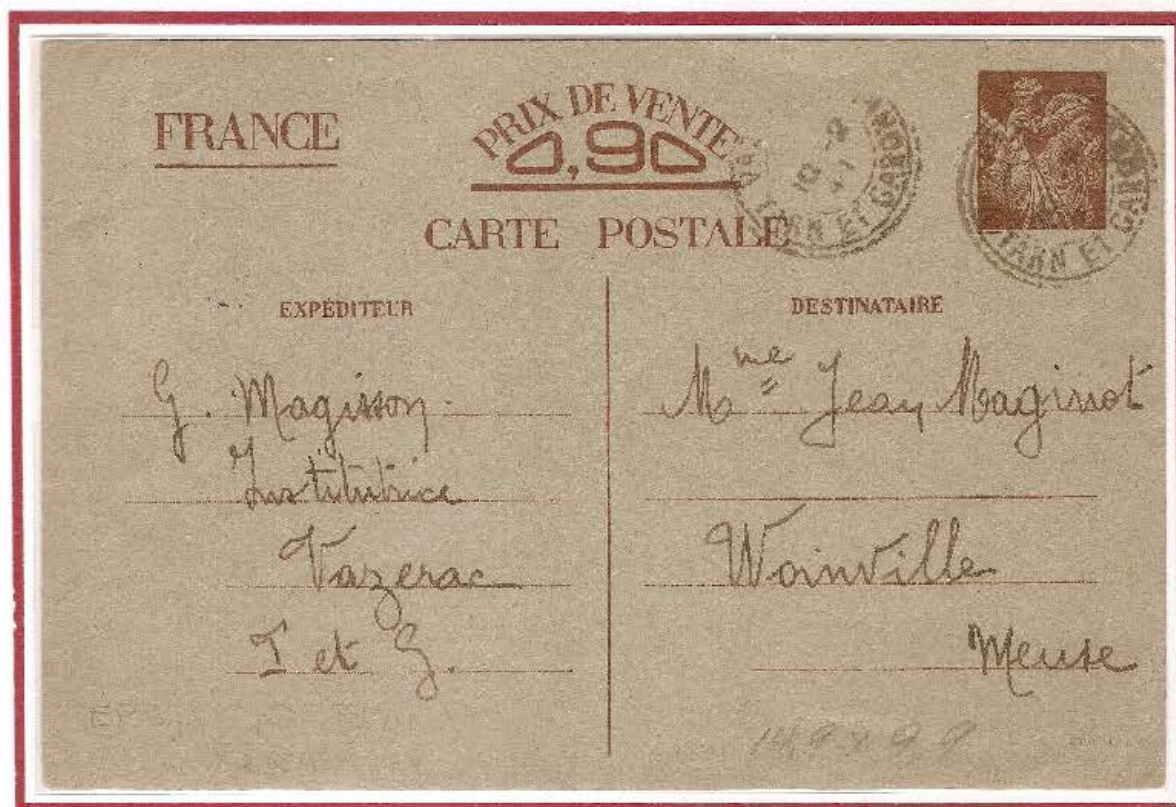 FRANCE
PRIX DE VENTE
0,90
CARTE POSTALE
TARN ET GARONNE
TARN ET GARONNE
EXPÉDITEUR
G. Magisson
Institutrice
Vazerac
T et G.
DESTINATAIRE
Mme Jean Maginot
Woinville
Meuse